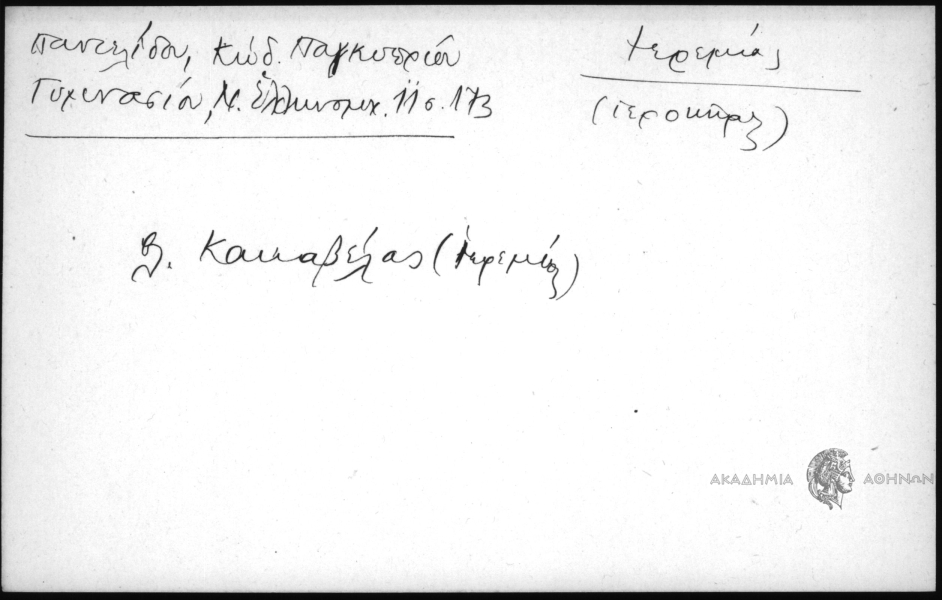 Παντελίδου, Κώδ. Παγκυπρίου
Γυμνασίου, Ν. Ἑλληνομν. 11 σ. 173
Ιερεμίας
(Ιεροκήρυξ)
βλ. Κακαβέλας (Ιερεμίας)
ΑΚΑΔΗΜΙΑ ΑΘΗΝΩΝ